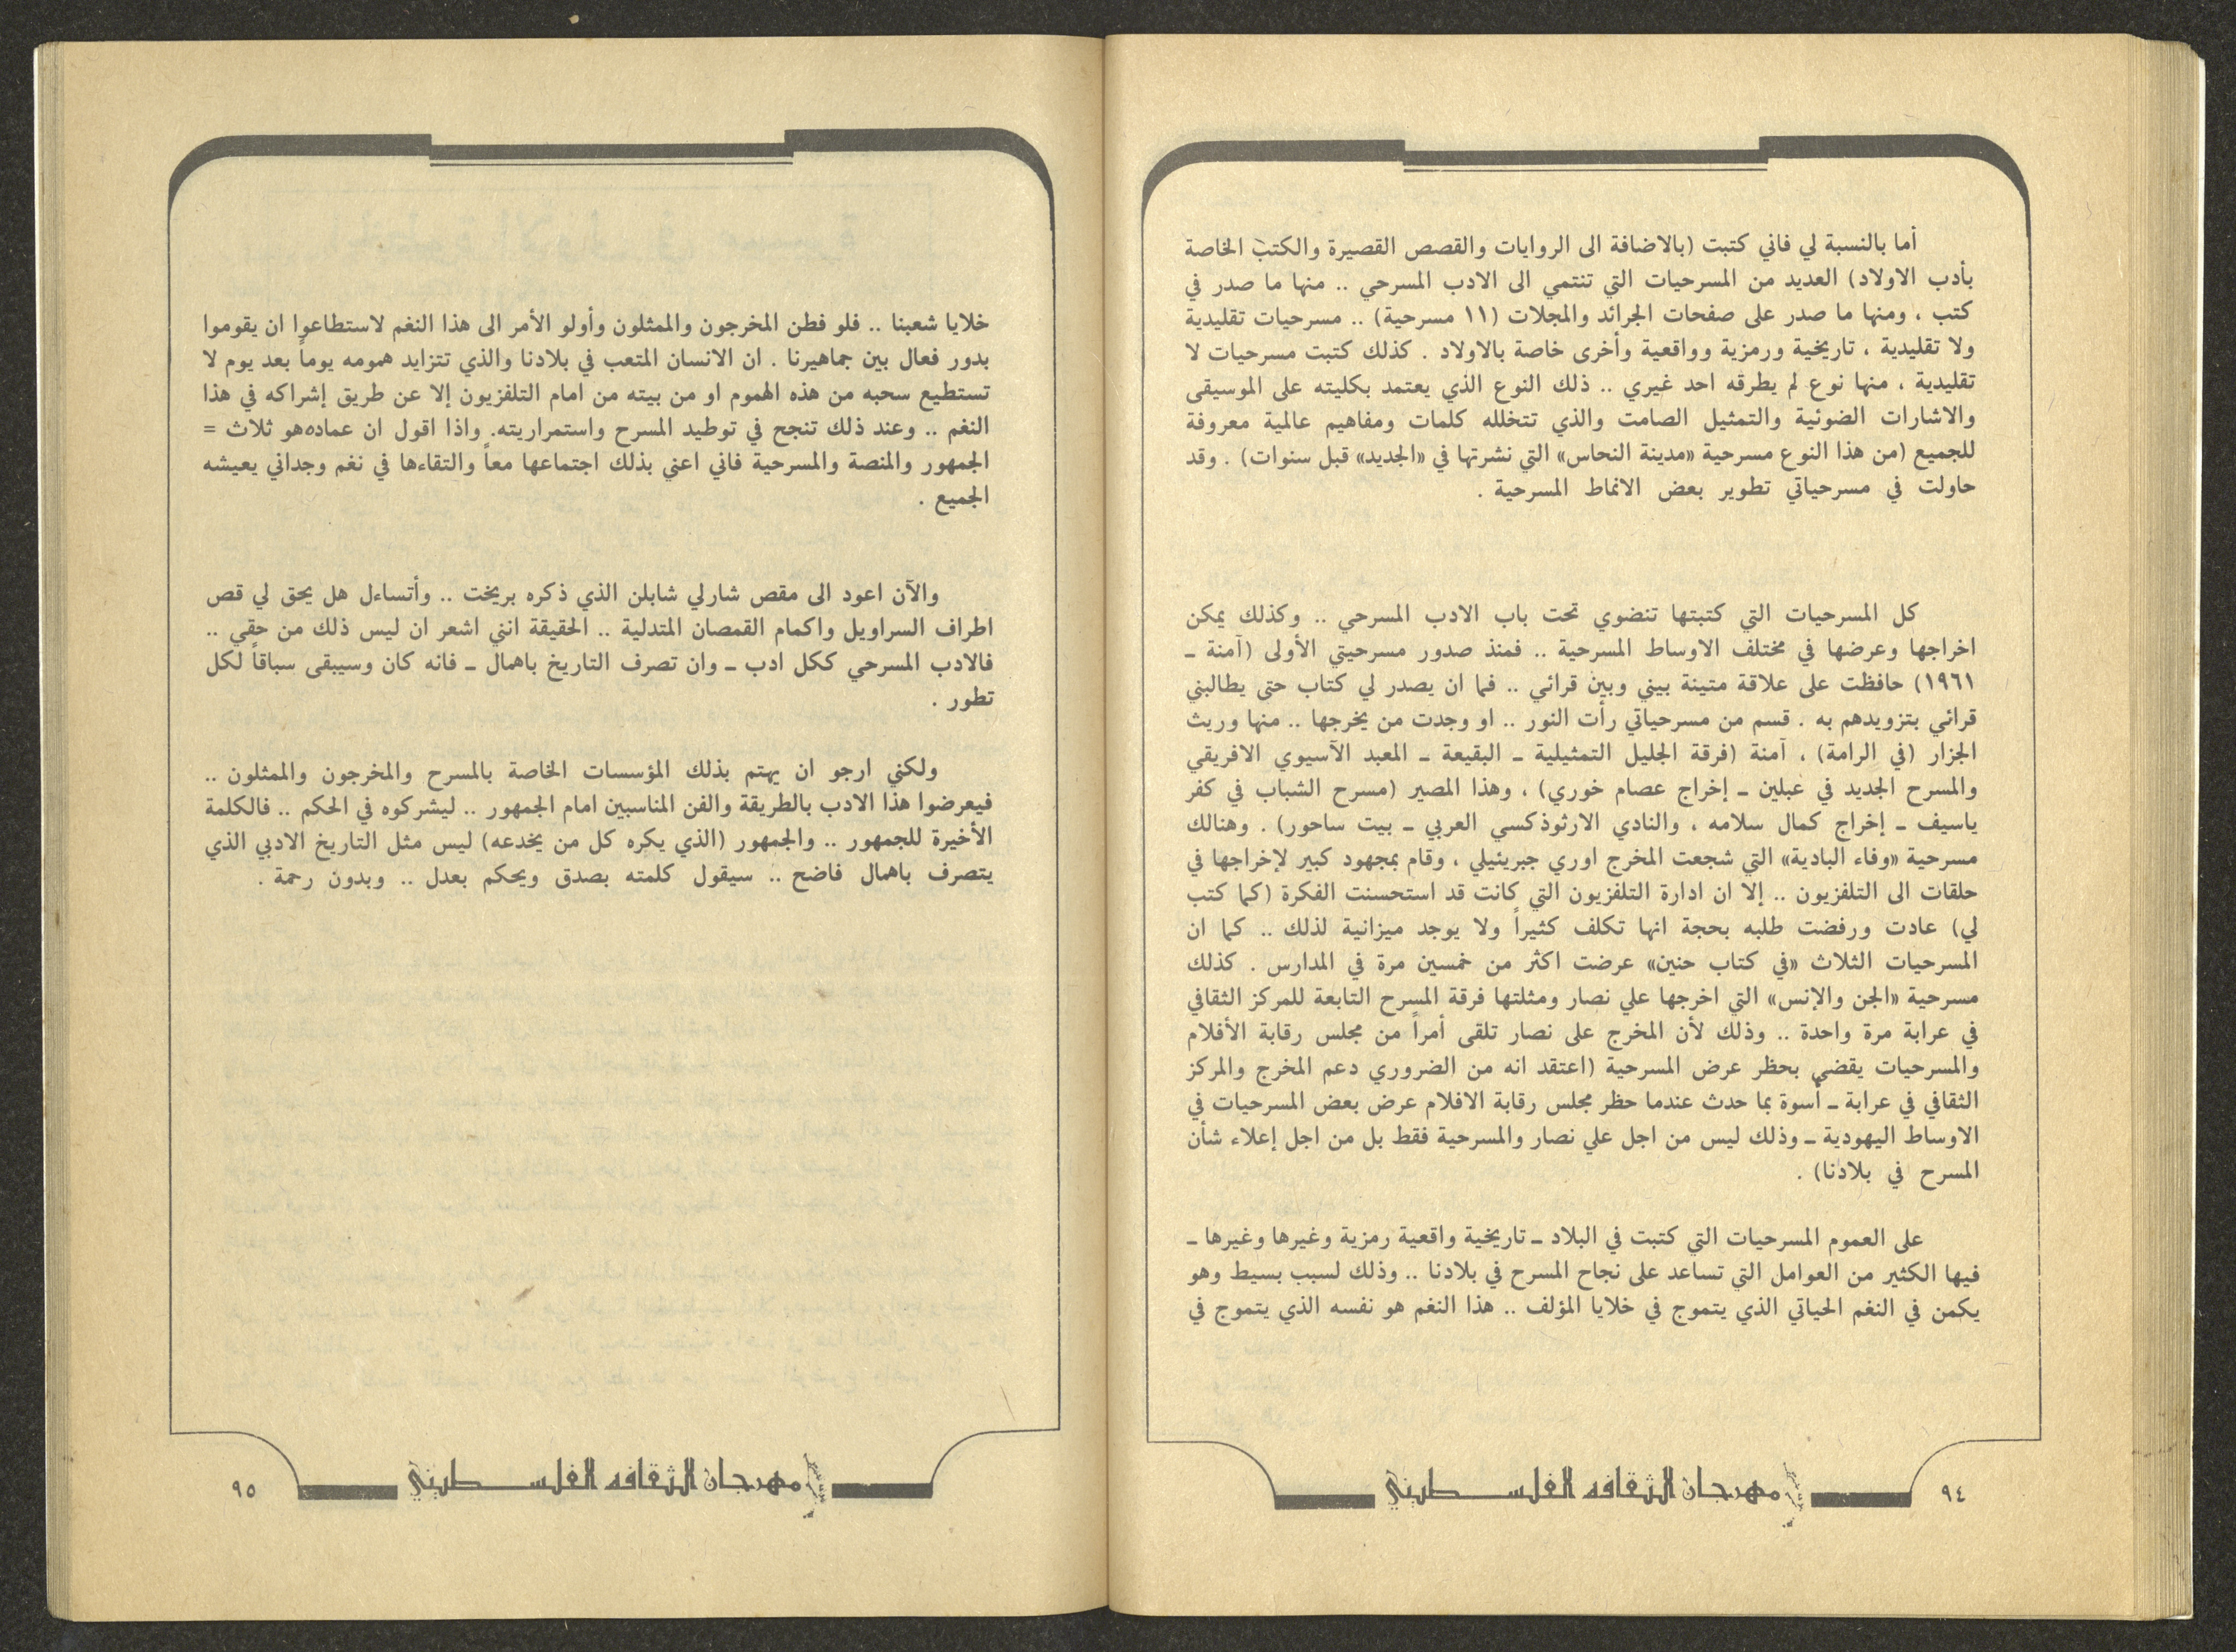 أما بالنسبة لي فاني كتبت (بالاضافة الى الروايات والقصص القصيرة والكتب الخاصة
بأدب الاولاد) العديد من المسرحيات التي تنتمي الى الادب المسرحي .. منها ما صدر في
كتب ، ومنها ما صدر على صفحات الجرائد والمجلات (١١ مسرحية) .. مسرحيات تقليدية
ولا تقليدية ، تاريخية ورمزية وواقعية وأخرى خاصة بالاولاد . كذلك كتبت مسرحيات لا
تقليدية ، منها نوع لم يطرقه احد غيري .. ذلك النوع الذي يعتمد بكليته على الموسيقى
والاشارات الضوئية والتمثيل الصامت والذي تتخلله كلمات ومفاهيم عالمية معروفة
للجميع (من هذا النوع مسرحية «مدينة النحاس» التي نشرتها في «الجديد» قبل سنوات) . وقد
حاولت في مسرحياتي تطوير بعض الانماط المسرحية .
كل المسرحيات التي كتبتها تنضوي تحت باب الادب المسرحي .. وكذلك يمكن
اخراجها وعرضها في مختلف الاوساط المسرحية .. فمنذ صدور مسرحيتي الأولى (آمنة ـ
١٩٦١) حافظت على علاقة متينة بيني وبين قرائي .. فما ان يصدر لي كتاب حتى يطالبني
قرائي بتزويدهم به . قسم من مسرحياتي رأت النور .. او وجدت من يخرجها .. منها وريث
الجزار (في الرامة) ، آمنة (فرقة الجليل التمثيلية ـ البقيعة ـ المعبد الآسيوي الافريقي
والمسرح الجديد في عبلين ـ إخراج عصام خوري) ، وهذا المصير (مسرح الشباب في كفر
ياسيف ـ إخراج كمال سلامه ، والنادي الارثوذكسي العربي ـ بيت ساحور) . وهنالك
مسرحية «وفاء البادية» التي شجعت المخرج اوري جبريئيلي ، وقام بمجهود كبير لإخراجها في
حلقات الى التلفزيون .. إلا ان ادارة التلفزيون التي كانت قد استحسنت الفكرة (كما كتب
لي) عادت ورفضت طلبه بحجة انها تكلف كثيراً ولا يوجد ميزانية لذلك .. كما ان
المسرحيات الثلاث «في كتاب حنين» عرضت اكثر من خمسين مرة في المدارس . كذلك
مسرحية «الجن والإنس» التي اخرجها علي نصار ومثلتها فرقة المسرح التابعة للمركز الثقافي
في عرابة مرة واحدة .. وذلك لأن المخرج على نصار تلقى أمراً من مجلس رقابة الأفلام
والمسرحيات يقضي بحظر عرض المسرحية (اعتقد انه من الضروري دعم المخرج والمركز
الثقافي في عرابة ـ أسوة بما حدث عندما حظر مجلس رقابة الافلام عرض بعض المسرحيات في
الاوساط اليهودية ـ وذلك ليس من اجل علي نصار والمسرحية فقط بل من اجل إعلاء شأن
المسرح في بلادنا) .
على العموم المسرحيات التي كتبت في البلاد ـ تاريخية واقعية رمزية وغيرها وغيرها ـ
فيها الكثير من العوامل التي تساعد على نجاح المسرح في بلادنا .. وذلك لسبب بسيط وهو
يكمن في النغم الحياتي الذي يتموج في خلايا المؤلف .. هذا النغم هو نفسه الذي يتموج في
مهرجان الثقافه الفلسطيني
٩٤
خلايا شعبنا .. فلو فطن المخرجون والممثلون وأولو الأمر الى هذا النغم لاستطاعوا ان يقوموا
بدور فعال بين جماهيرنا . ان الانسان المتعب في بلادنا والذي تتزايد همومه يوماً بعد يوم لا
تستطيع سحبه من هذه الهموم او من بيته من امام التلفزيون إلا عن طريق إشراكه في هذا
النغم .. وعند ذلك تنجح في توطيد المسرح واستمراريته. واذا اقول ان عماده هو ثلاث =
الجمهور والمنصة والمسرحية فاني اعني بذلك اجتماعها معاً والتقاءها في نغم وجداني يعيشه
الجميع .
والآن اعود الى مقص شارلي شابلن الذي ذكره بريخت .. وأتساءل هل يحق لي قص
اطراف السراويل واكمام القمصان المتدلية .. الحقيقة انني اشعر ان ليس ذلك من حقي ..
فالادب المسرحي ككل ادب ـ وان تصرف التاريخ باهمال ـ فانه كان وسيبقى سباقاً لكل
تطور .
ولكني ارجو ان يهتم بذلك المؤسسات الخاصة بالمسرح والمخرجون والممثلون ..
فيعرضوا هذا الادب بالطريقة والفن المناسبين امام الجمهور .. ليشركوه في الحكم .. فالكلمة
الأخيرة للجمهور .. والجمهور (الذي يكره كل من يخدعه) ليس مثل التاريخ الادبي الذي
يتصرف باهمال فاضح .. سيقول كلمته بصدق ويحكم بعدل .. وبدون رحمة .
مهرجان الثقافه الفلسطيني
٩٥